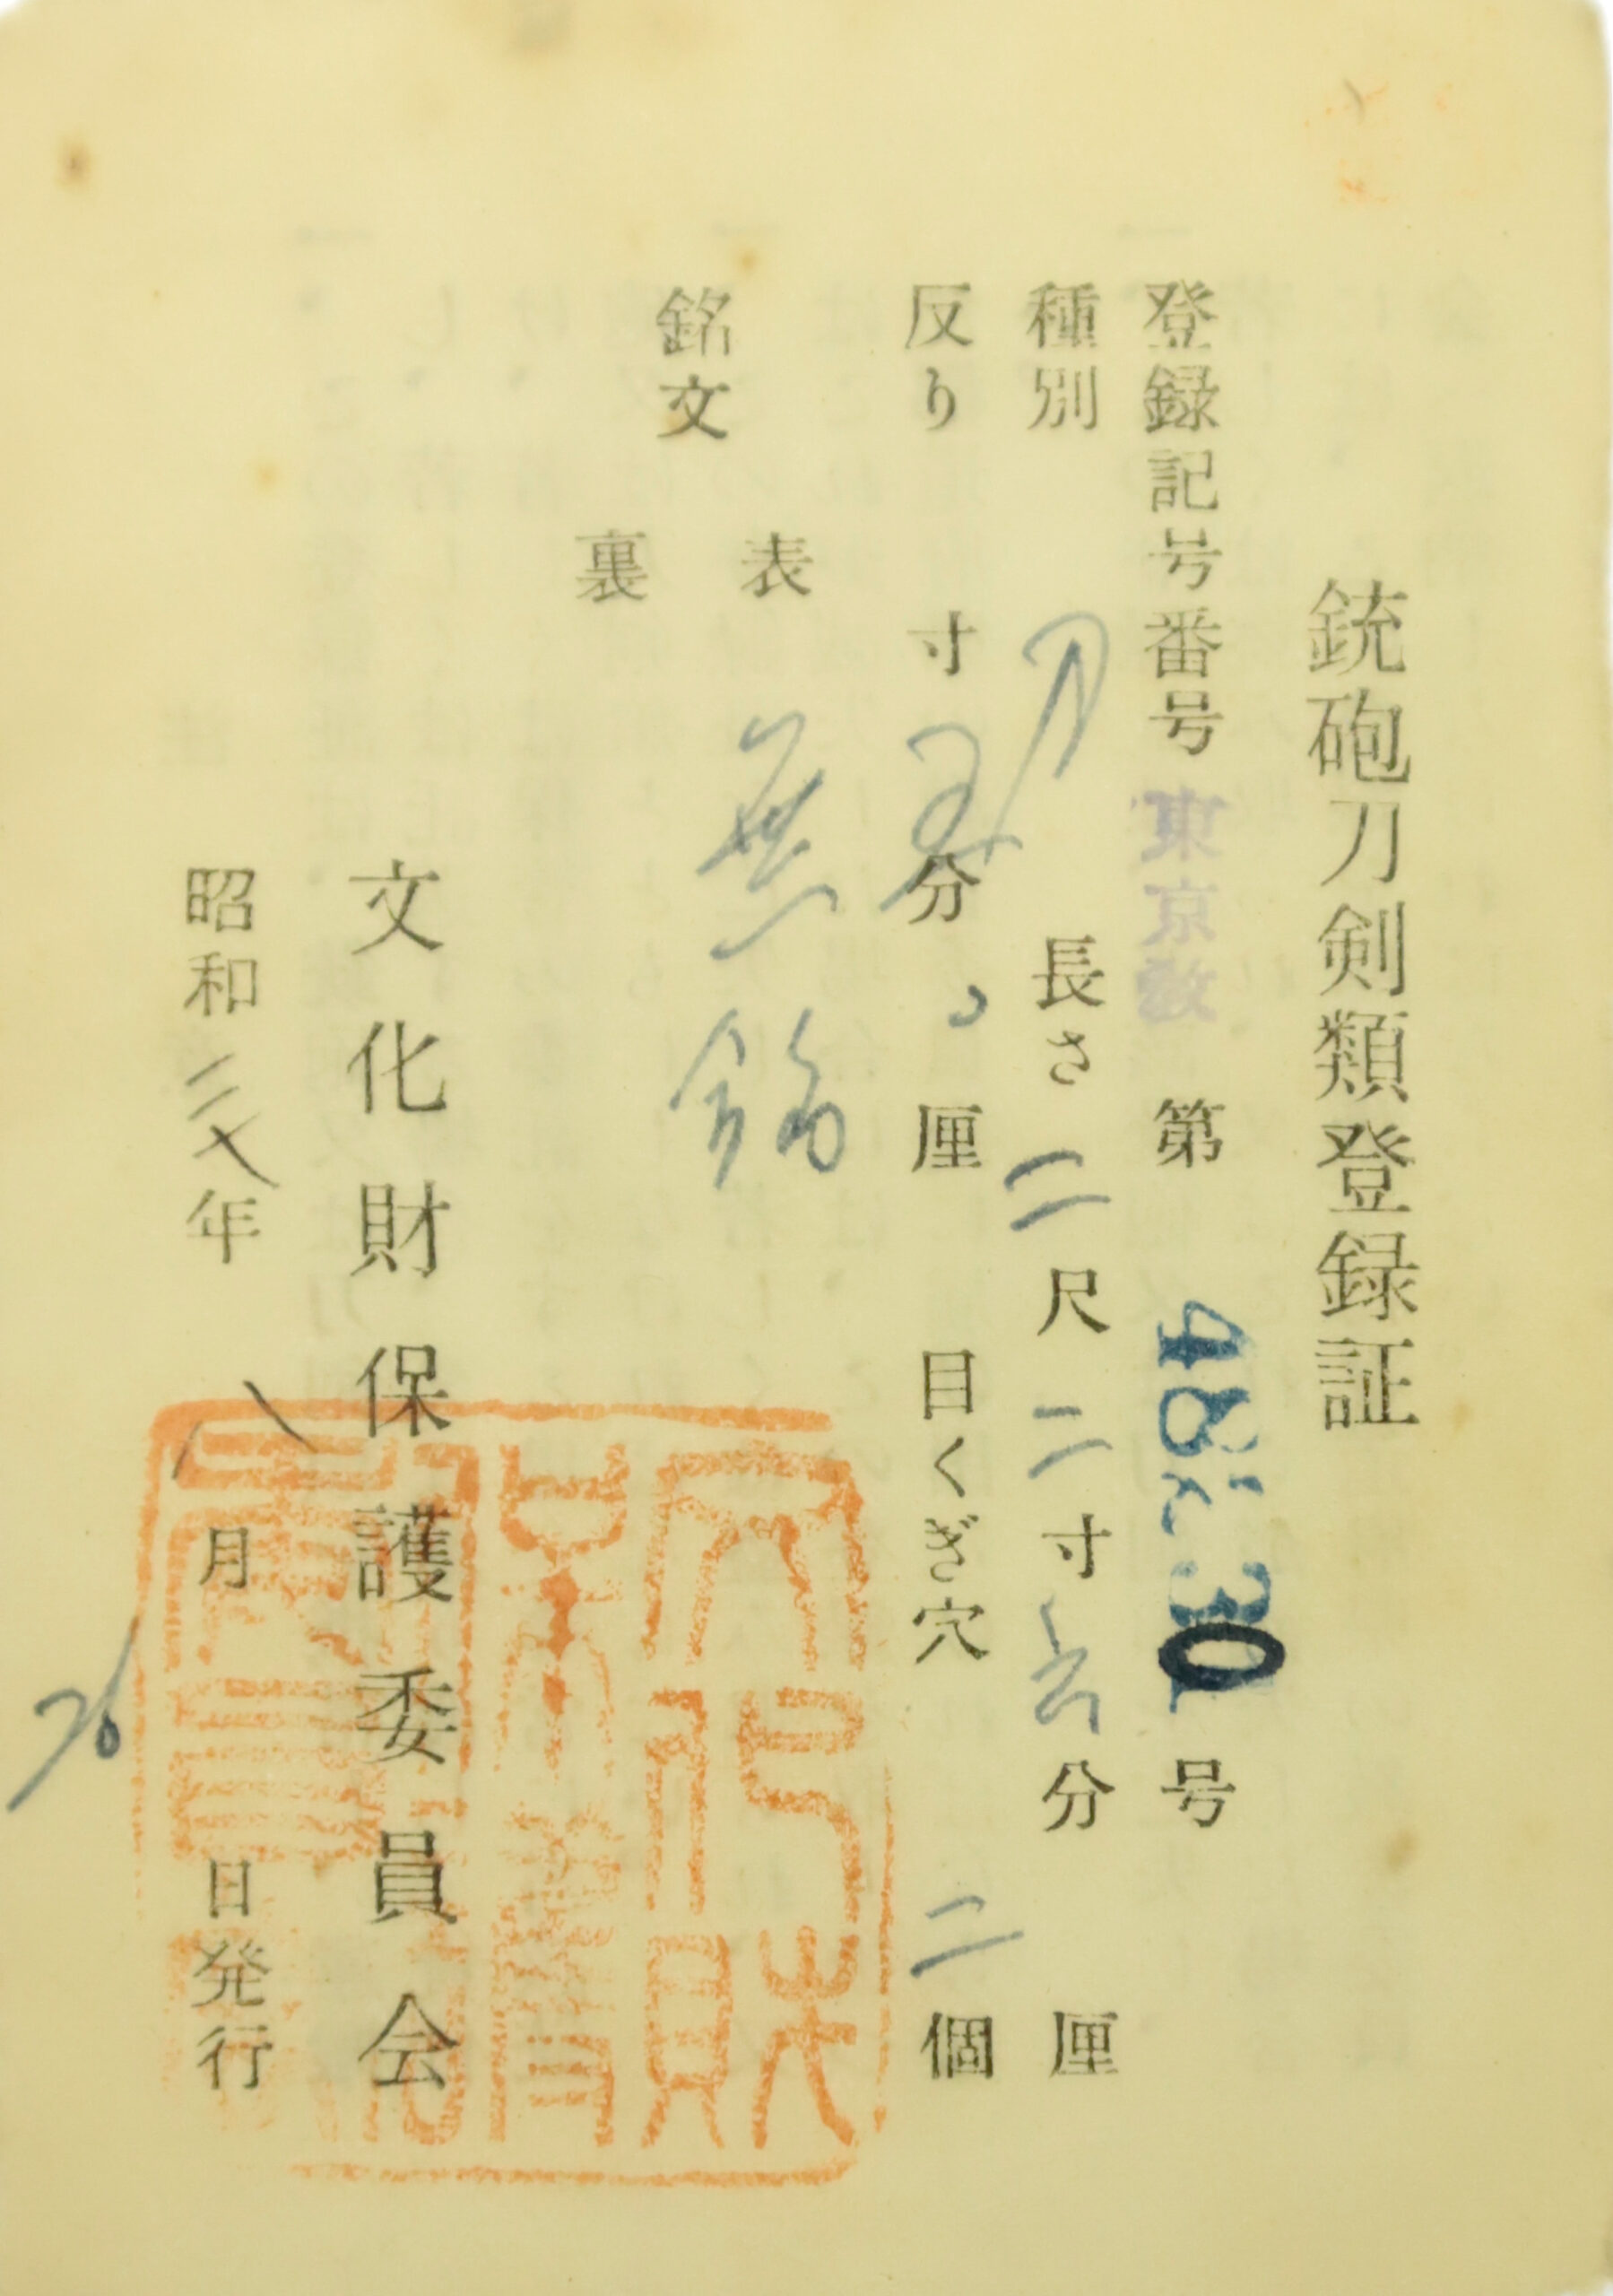 銃砲刀剣類登録証
登録記号番号 東京教 第 48230 号
種別 刀 長さ 二尺二寸六分 厘
反り 寸 五分 厘 目くぎ穴 二個
銘文
表 無銘
裏
文化財保護委員会
昭和二六年八月26日発行